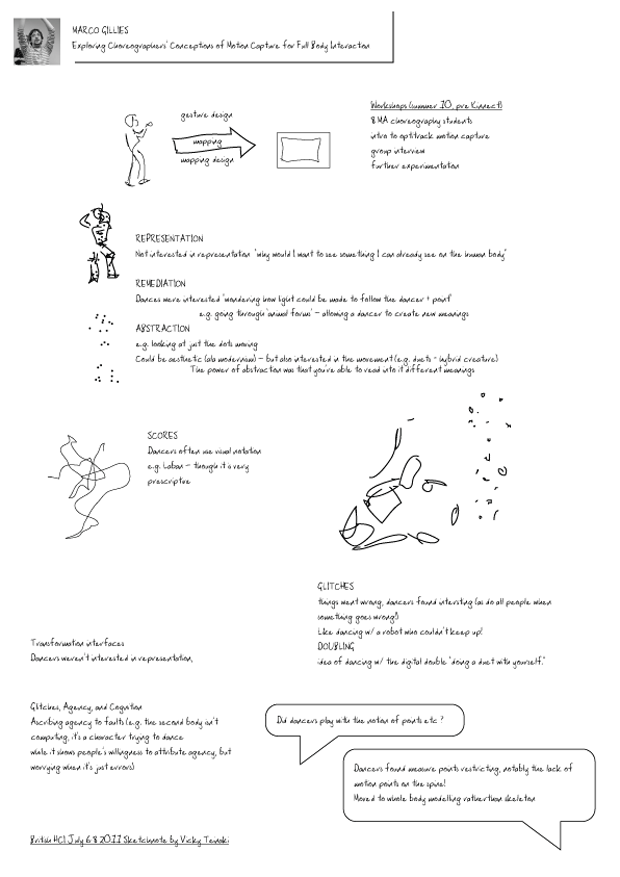 MARCO GILLIES
Exploring Choreographers' Conceptions of Motion Capture for Full Body Interaction
gesture design
mapping
mapping design
Workshops (summer 10, pre Kinnect)
8 MA choreography students
intro to optitrack motion capture
group interview
further experimentation
REPRESENTATION
Not interested in representation "why would I want to see something I can already see on the human body"
REMEDIATION
Dances were interested 'wondering how light could be made to follow the dancer + point'
e.g. going through 'animal forms' - allowing a dancer to create new meanings
ABSTRACTION
e.g. looking at just the dots moving
Could be aesthetic (ala modernism) - but also interested in the movement (e.g. duets - hybrid creature)
The power of abstraction was that you're able to read into it different meanings
SCORES
Dancers often use visual notation
e.g. Laban - though it is very
prescriptive
GLITCHES
things went wrong, dancers found intersting (as do all people when
something goes wrong!)
Like dancing w/ a robot who couldn't keep up!
DOUBLING
idea of dancing w/ the digital double "doing a duet with yourself."
Transformation interfaces
Dancers weren't interested in representation,
Glitches, Agency, and Cognition
Ascribing agency to faults (e.g. the second body isn't
computing, it's a character trying to dance
while it shows people's willingness to attribute agency, but
worrying when it's just errors)
Did dancers play with the notion of points etc ?
Dancers found measure points restricting, notably the lack of
motion points on the spine!
Moved to whole body modelling ratherthan skeleton
British HCI July 6 8 2011 Sketchnote by Vicky Teinaki